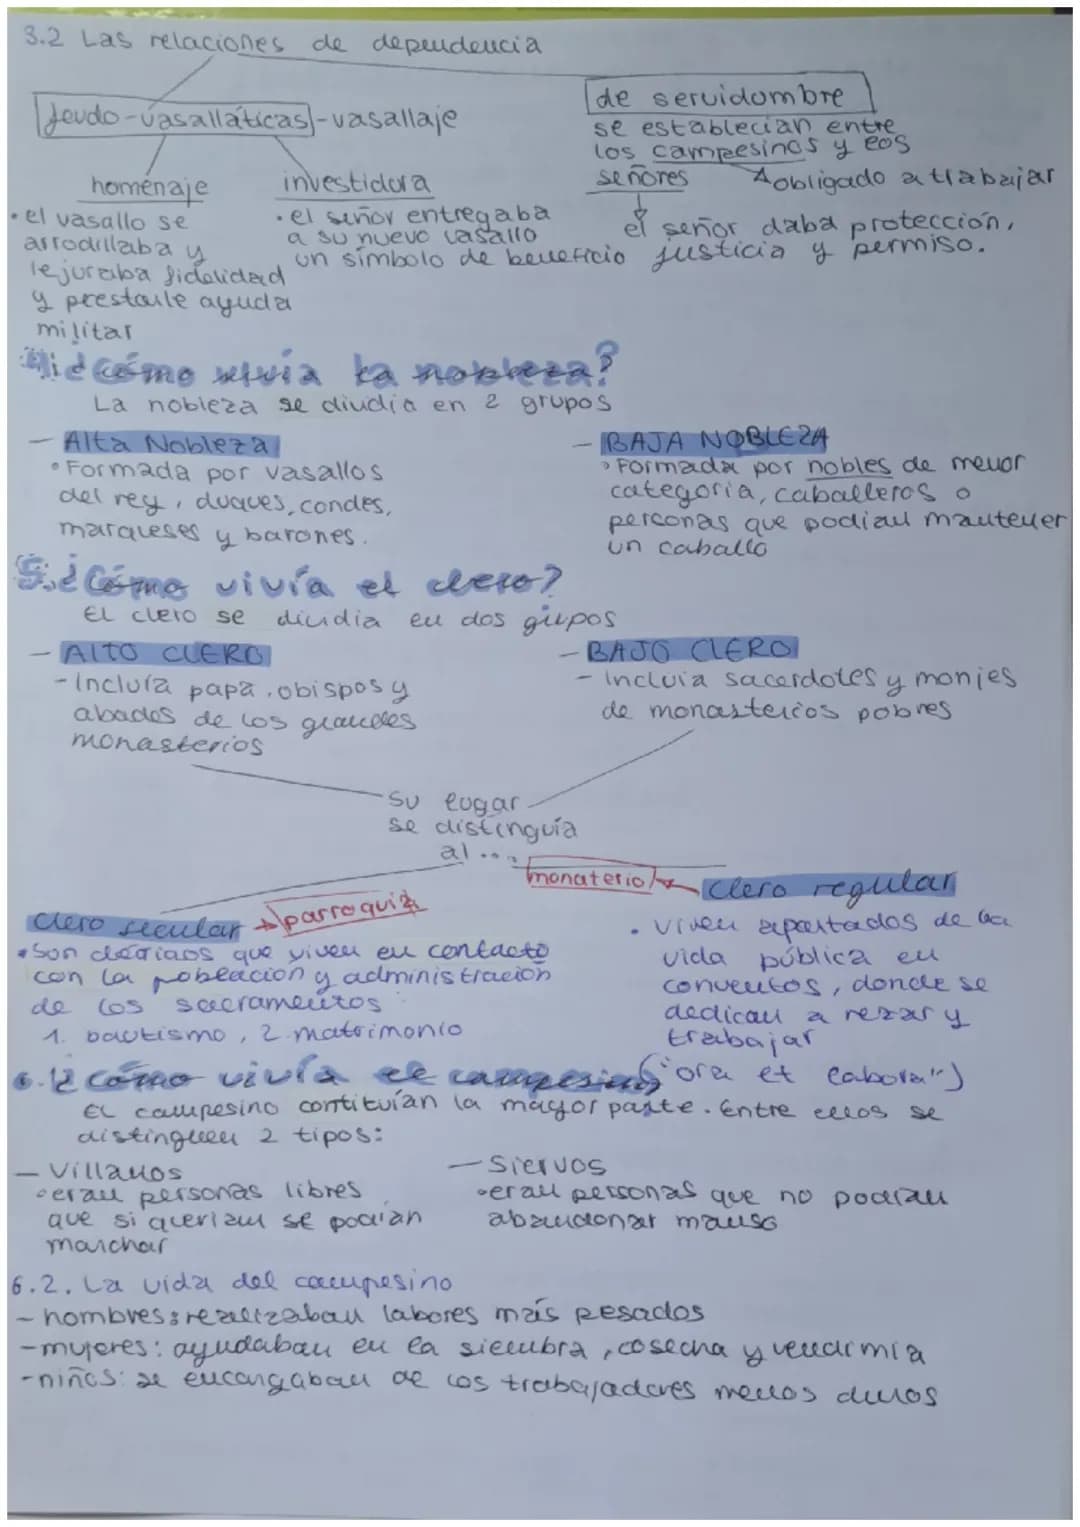 3.2 Las relaciones de dependencia
feudo-vasalláticas - vasallaje
homenaje
• el vasallo se
arrodillaba y
le juraba fidelidad
y prestarle ayuda
militar
investidura
• el señor entregaba
a su nuevo vasallo
un símbolo de beneficio
de servidumbre
se establecían entre
los campesinos y los
señores
obligado a trabajar
el señor daba protección,
justicia y permiso.
4. ¿Cómo vivía la nobleza?
La nobleza se diudia en 2 grupos
- Alta Nobleza
• Formada por vasallos
del rey, duques, condes,
marqueses y barones.
- BAJA NOBLEZA
• Formada por nobles de menor
categoria, caballeros o
personas que podian mantener
un caballo
5. ¿Cómo vivía el clero?
El clero se diudia en dos grupos
- ALTO CLERO
- Incluía papa, obispos y
abades de los grandes
monasterios
- BAJO CLERO
- incluia sacerdotes y monjes
de monasterios pobres
Su lugar
se distinguía
al ...
clero secular → parroquia
• Son clérigos que viven en contacto
con la población y administración
de los sacramentos:
1. bautismo, 2. matrimonio
monaterio ← clero regular
• viven apartados de la
vida pública en
conventos, donde se
dedican a rezar y
trabajar
("ora et labora")
6. ¿Cómo vivía el campesino?
El campesino contituían la mayor parte. Entre ellos se
distinguen 2 tipos:
- Villanos
• eran personas libres
que si querian se podian
marchar
- Siervos
• eran personas que no podían
abandonar manso
6.2. La vida del campesino
- hombres: realizaban labores más pesados
- mujeres: ayudaban en la siembra, cosecha y vendimia
- niños: se encargaban de los trabajadores menos duros